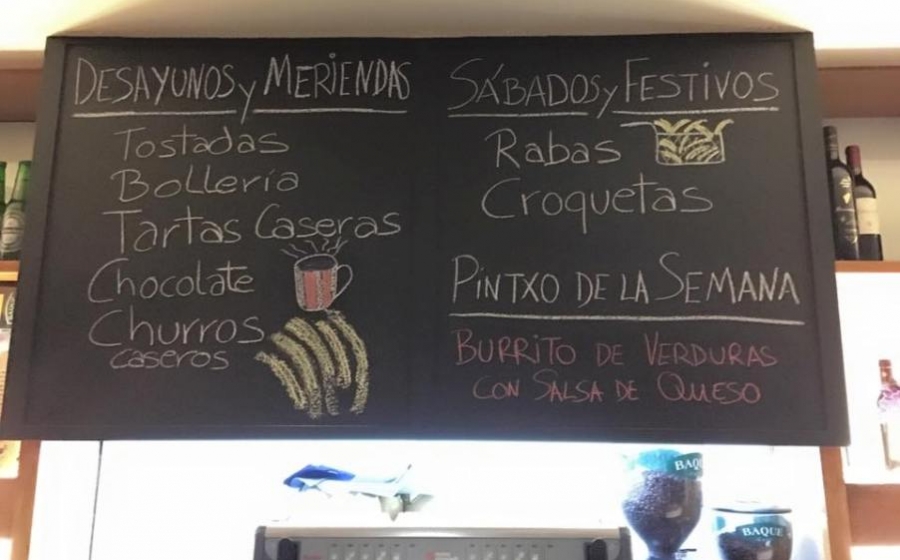 DESAYUNOS y MERIENDAS
Tostadas
Bollería
Tartas Caseras
Chocolate
Churros
caseros
SÁBADOS y FESTIVOS
Rabas
Croquetas
PINTXO DE LA SEMANA
BURRITO DE VERDURAS
CON SALSA DE QUESO
BAQUE
BAQUE